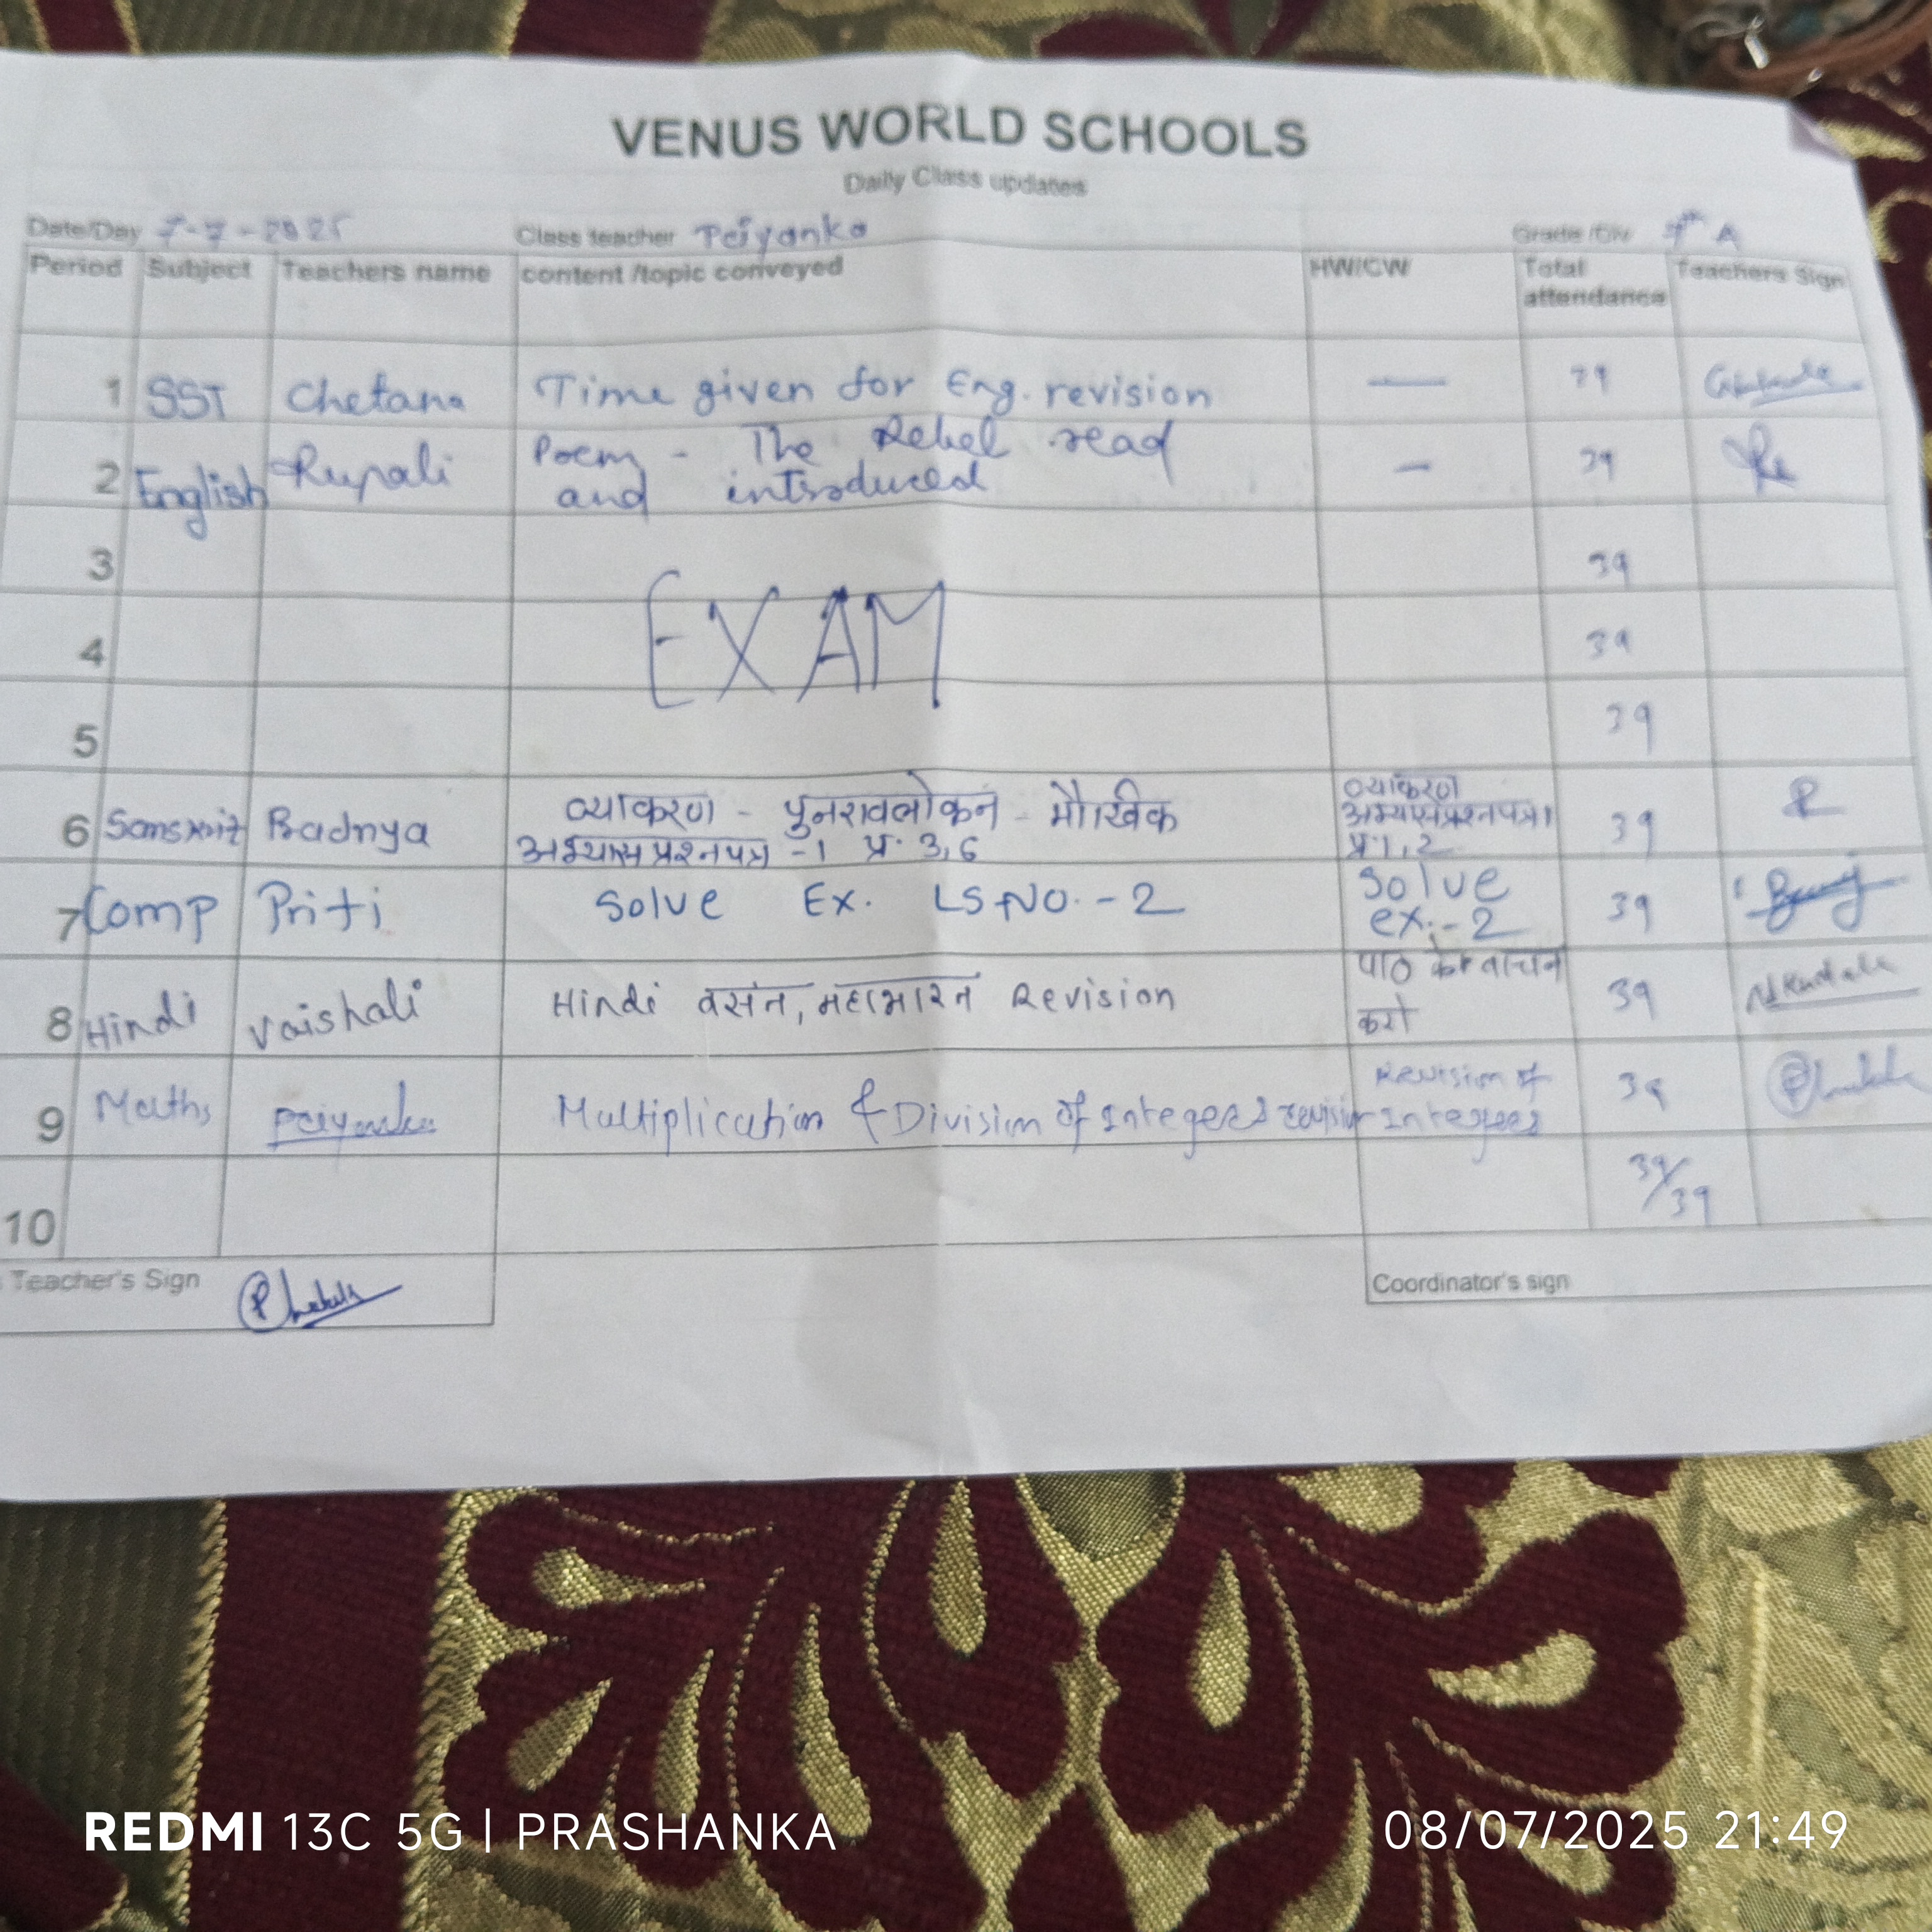 VENUS WORLD SCHOOLS
Daily Class updates
Date/Day 7-7-2025 Class teacher Priyanka Grade /Div 7th A
Period Subject Teachers name content /topic conveyed HW/CW Total attendance Teachers Sign
1 SST Chetana Time given for Eng. revision — 39
2 English Rupali Poem - The Rebel read
and introduced — 39
3 39
EXAM
4 39
5 39
6 Sanskrit Pradnya व्याकरण - पुनरावलोकन - मौखिक व्याकरण 39
अभ्यासप्रश्नपत्र -1 प्र. 3,6 अभ्यासप्रश्नपत्र1
प्र.1,2
7 Comp Priti Solve Ex. LS NO.-2 Solve 39
ex.-2
8 Hindi Vaishali Hindi वसंत, महाभारत Revision पाठ का वाचन 39
करो
9 Maths Priyanka Multiplication & Division of Integers revision Revision of 39
Integers
10 39/39
Teacher's Sign Coordinator's sign
REDMI 13C 5G | PRASHANKA 08/07/2025 21:49